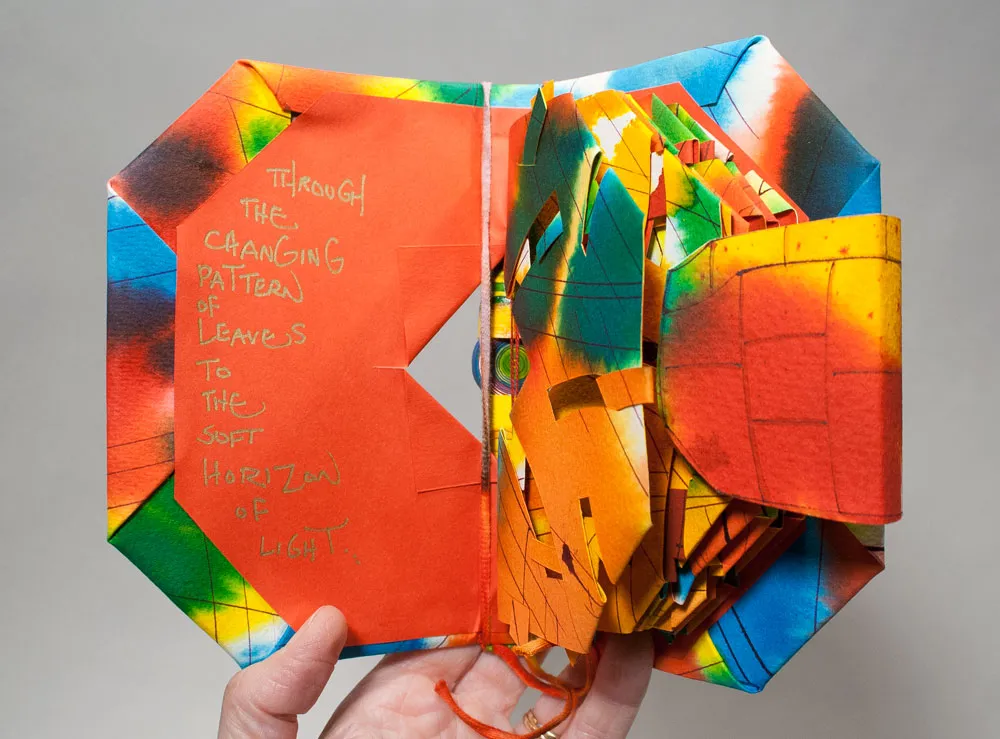 THROUGH
THE
CHANGING
PATTERN
OF
LEAVES
TO
THE
SOFT
HORIZON
OF
LIGHT.